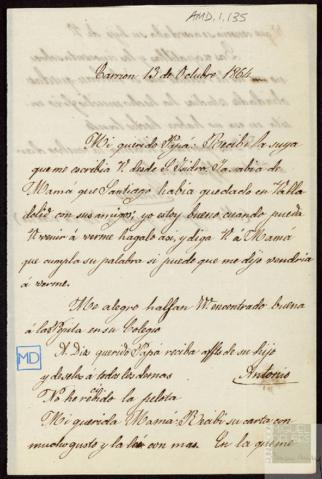 AMD.1.135
Carrion 13 de Octubre 1864
Mi querido Papa: Recibi la suya
que me escribia V. desde S. Isidro. Ya sabia de
Mamá que Santiago habia quedado en Valla
dolid con sus amigos; yo estoy bueno cuando pueda
V. venir á verme hagalo asi, y diga V. á Mamá
que cumpla su palabra si puede que me dijo vendria
á verme.
Me alegro halfan VV. encontrado buena
á la Pepita en su Colegio
A Dios querido Papá reciba affto de su hijo
y deselos á todos los demas
Antonio
MD
No he recibido la pelota
Mi querida Mamá: Recibi su carta con
mucho gusto y la lei con mas. En la que me